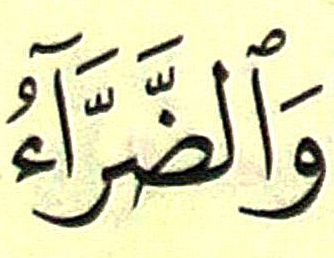 وَٱلضَّرَّآءُ